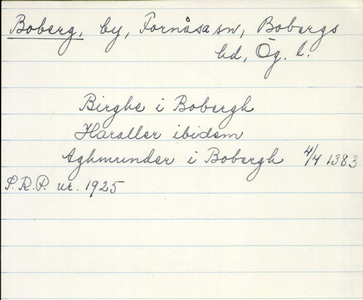 Boberg, by, Fornåsa sn, Bobergs
hd, Ög. l.
Birghe i Bobergh
Haralder ibidem
Aghmunder i Bobergh 4/4 1383
S.R.P. nr. 1925